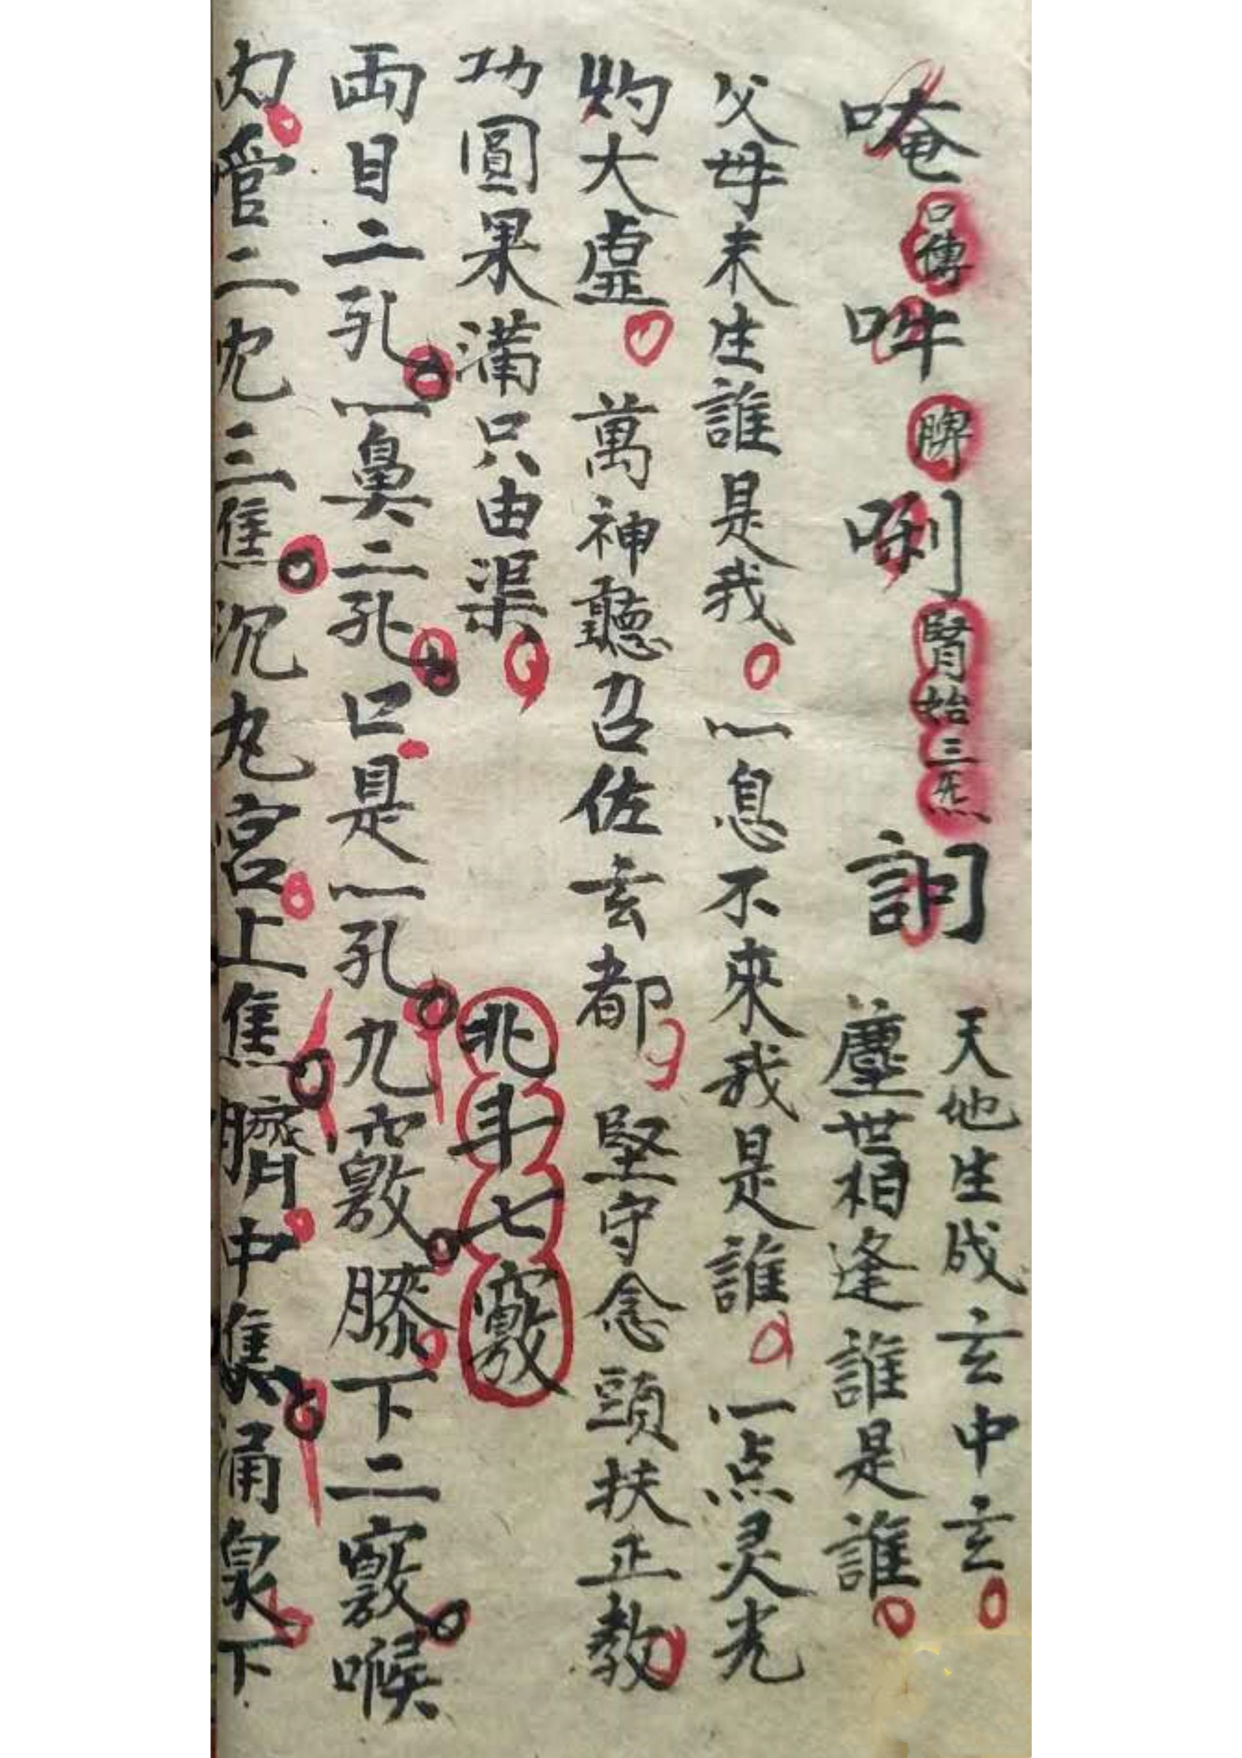 唵 口傳 吽 脾 唎 腎 始三炁 訶
天地生成玄中玄
塵世相逢誰是誰
父母未生誰是我 一息不來我是誰 一点灵光
灼大虛 萬神聽召佐玄都 堅守念頭扶正教
功圓果滿只由渠 北斗七竅
两目二孔 一鼻二孔 口是一孔 九竅 膝下二竅 喉
內管二 三焦 沉九宮上焦 臍中焦 涌泉下